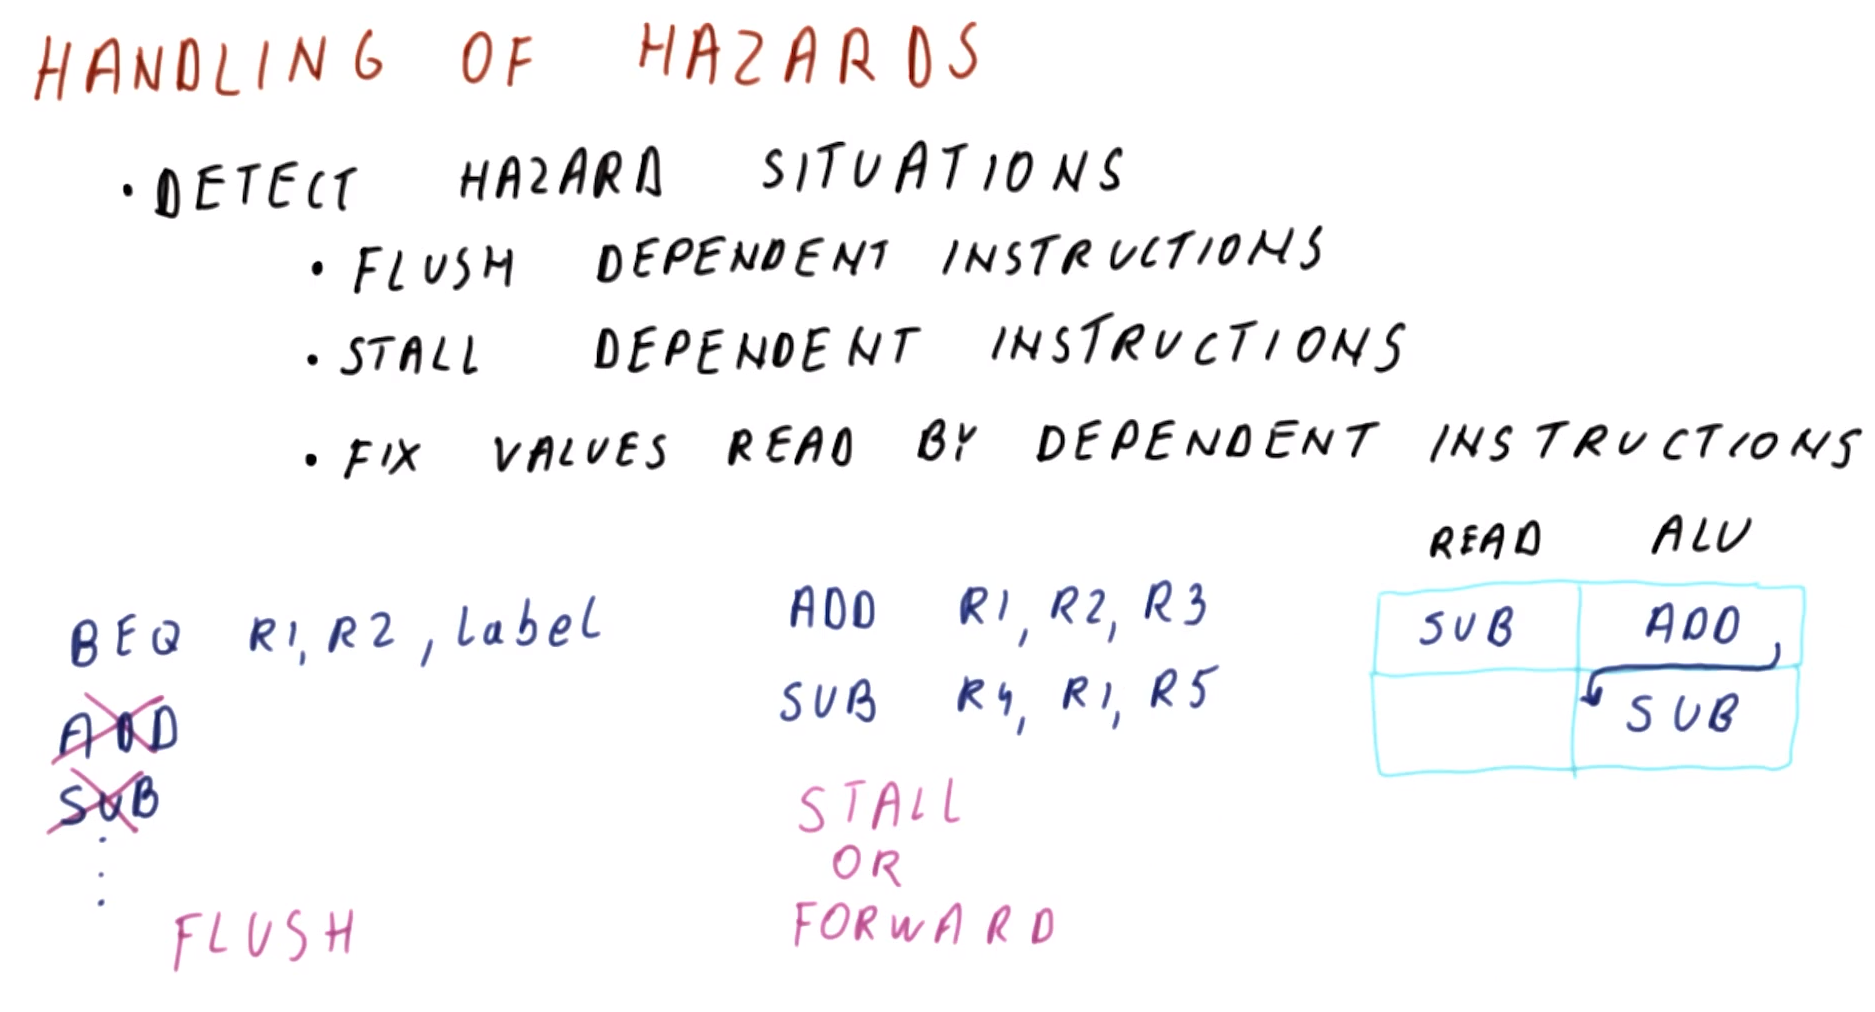 HANDLING OF HAZARDS
• DETECT HAZARD SITUATIONS
• FLUSH DEPENDENT INSTRUCTIONS
• STALL DEPENDENT INSTRUCTIONS
• FIX VALUES READ BY DEPENDENT INSTRUCTIONS
BEQ R1, R2, label
ADD
SUB
FLUSH
ADD R1, R2, R3
SUB R4, R1, R5
STALL
OR
FORWARD
READ ALU
SUB ADD
SUB